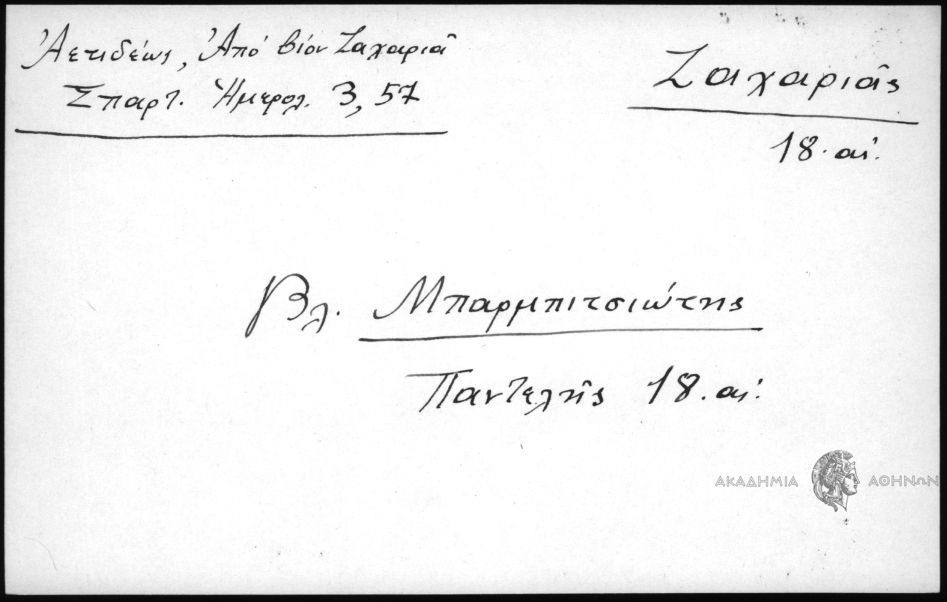 Ἀετιδέως, Ἀπό βίον Ζαχαριᾶ
Σπαρτ. Ἡμερολ. 3, 57
Ζαχαριᾶς
18. αἰ.
Βλ. Μπαρμπιτσιώτης
Παντελῆς 18. αἰ.
ΑΚΑΔΗΜΙΑ ΑΘΗΝΩΝ